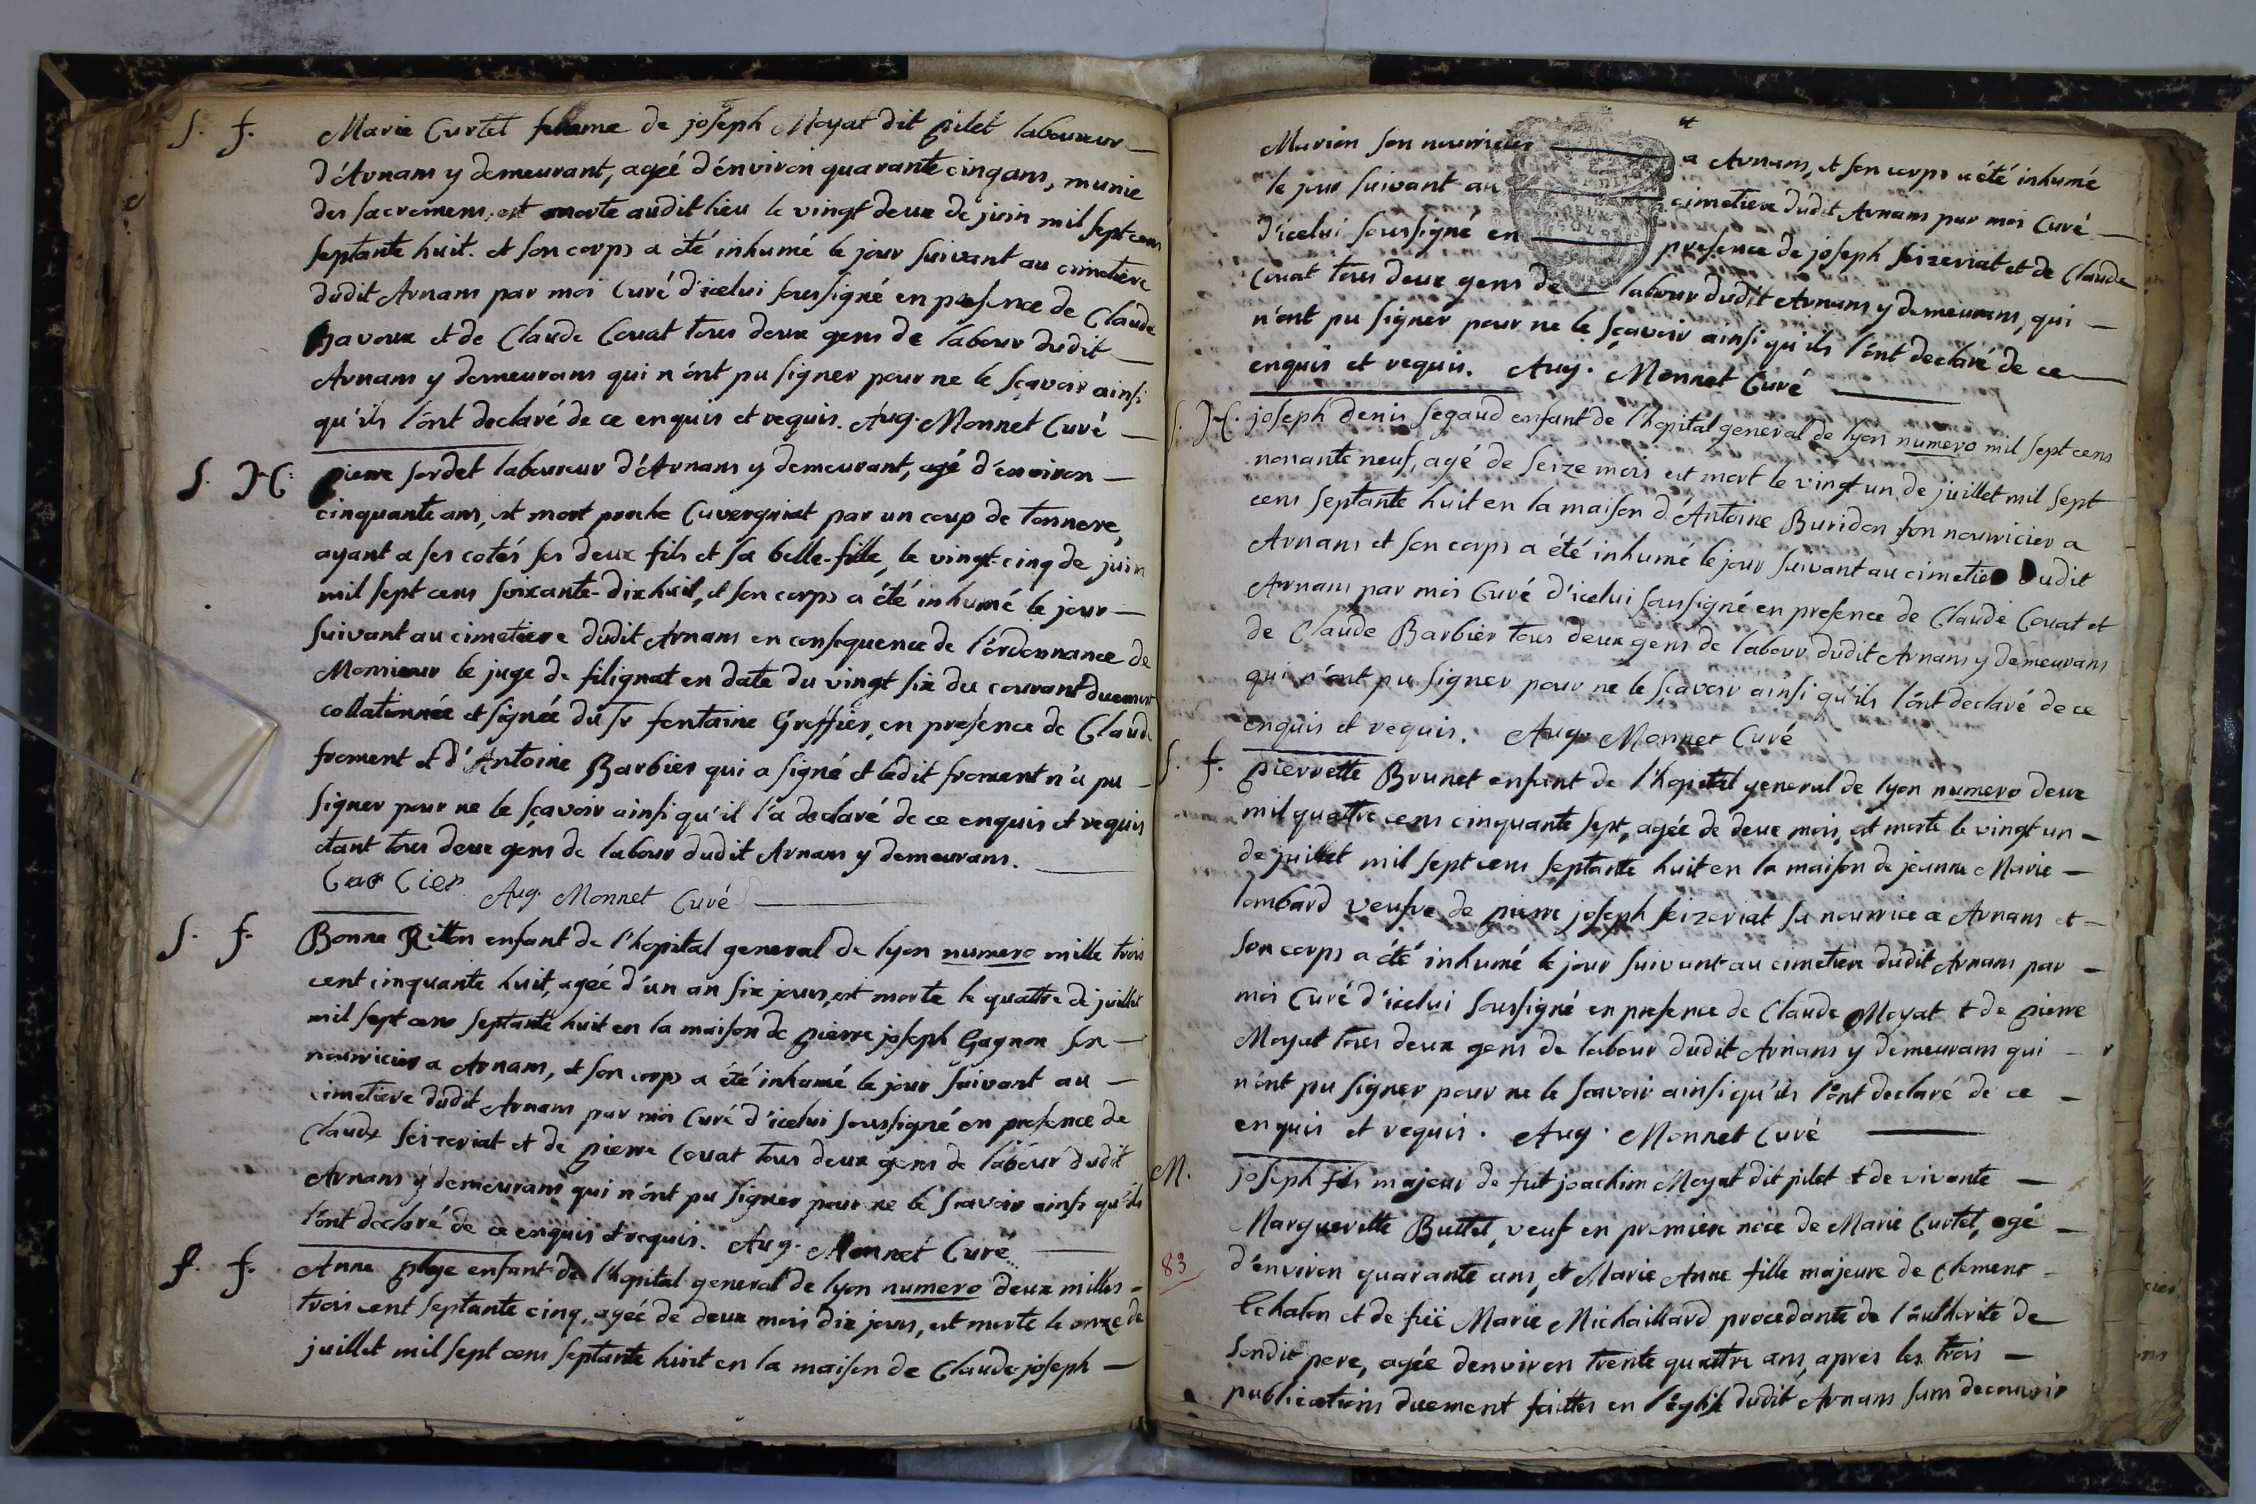 S. f. Marie Curtet femme de joseph Moyat dit pilet laboureur
d'Arnans y demeurant, ageé d'énviron quarante cinq ans, munie
des sacremens, est morte audit lieu le vingt deux de juin mil sept cens
septante huit. et son corps a été inhumé le jour suivant au cimetiere
dudit Arnans par moi Curé d'icelui soussigné en presence de Claude
Bavoux et de Claude Couat tous deux gens de labour dudit
Arnans y demeurans qui n'ónt pu signer pour ne le sçavoir ainsi
qu'ils l'ónt declaré de ce enquis et requis. Aug. Monnet Curé
S. H. pierre sordet laboureur d'Arnans y demeurant, agé d'environ
cinquante ans, est mort proche Cuvergniat par un coup de tonnere,
ayant a ses cotés ses deux fils et sa bélle-fille, le vingt-cinq de juin
mil sept cens soixante-dixhuit, et son corps a été inhumé le jour
suivant au cimetiere dudit Arnans en consequence de l'órdonnance de
Monsieur le juge de filignat en date du vingt six du courant duement
collationnée et signée du Sr fontaine Greffier, en presence de Claude
froment et d'Antoine Barbier qui a signé et ledit froment n'a pu
signer pour ne le sçavoir ainsi qu'il l'a declaré de ce enquis et requis
étant tous deux gens de labour dudit Arnans y demeurans.
Aug. Monnet Curé
S. f. Bonne Ritton enfant de l'hopital general de lyon numero mille trois
cent cinquante huit, ageé d'un an six jours, est morte le quattre de juillet
mil sept cens septante huit en la maison de pierre joseph Gagnon son
nourricier a Arnans, et son corps a été inhumé le jour suivant au
cimetiere dudit Arnans par moi Curé d'icelui soussigné en presence de
Claude Seizeriat et de pierre Couat tous deux gens de labour dudit
Arnans y demeurans qui n'ónt pu signer pour ne le scavoir ainsi qu'ils
l'ónt declaré de ce enquis et requis. Aug. Monnet Curé
S. f. Anne enfant de l'hopital general de lyon numero deux milles
trois cent septante cinq, ageé de deux mois dix jours, est morte le onze de
juillet mil sept cens septante huit en la maison de Claude joseph
Marion son nourricier a Arnans, et son corps a été inhumé
le jour suivant au cimetiere dudit Arnans par moi Curé
d'icelui soussigné en presence de joseph Seizeriat et de Claude
Couat tous deux gens de labour dudit Arnans y demeurans, qui
n'ónt pu signer pour ne le sçavoir ainsi qu'ils l'ónt declaré de ce
enquis et requis. Aug. Monnet Curé
S. H. joseph denis Segaud enfant de l'hopital general de lyon numero mil sept cens
nonante neuf, agé de seize mois est mort le vingt un de juillet mil sept
cens septante huit en la maison d'Antoine Buridon son nourricier a
Arnans et son corps a été inhumé le jour suivant au cimetiere dudit
Arnans par moi Curé d'icelui soussigné en presence de Claude Couat et
de Claude Barbier tous deux gens de labour dudit Arnans y demeurans
qui n'ónt pu signer pour ne le sçavoir ainsi qu'ils l'ónt declaré de ce
enquis et requis. Aug. Monnet Curé
S. f. pierrette Brunet enfant de l'hopital general de lyon numero deux
mil quattre cens cinquante sept, agée de deux mois, est morte le vingt un
de juillet mil sept cens septante huit en la maison de jeanne Marie
lombard veufve de pierre joseph Seizeriat sa nourrice a Arnans et
son corps a été inhumé le jour suivant au cimetiere dudit Arnans par
moi Curé d'icelui soussigné en presence de Claude Moyat et de pierre
Moyat tous deux gens de labour dudit Arnans y demeurans qui
n'ont pu signer pour ne le scavoir ainsi qu'ils l'ónt declaré de ce
enquis et requis. Aug. Monnet Curé
M. joseph fils majeur de fut joachim Moyat dit pilet et de vivante
Marguerette Buttet, veuf en premiere nôce de Marie Curtet, agé
83 d'énviron quarante ans, et Marie Anne fille majeure de Clement
Echalon et de füe Marie Michaillard procedante de l'authorité de
sondit pere, agée denviron trente quattre ans, apres les trois
publications duement faittes en l'église dudit Arnans sans decouvrir